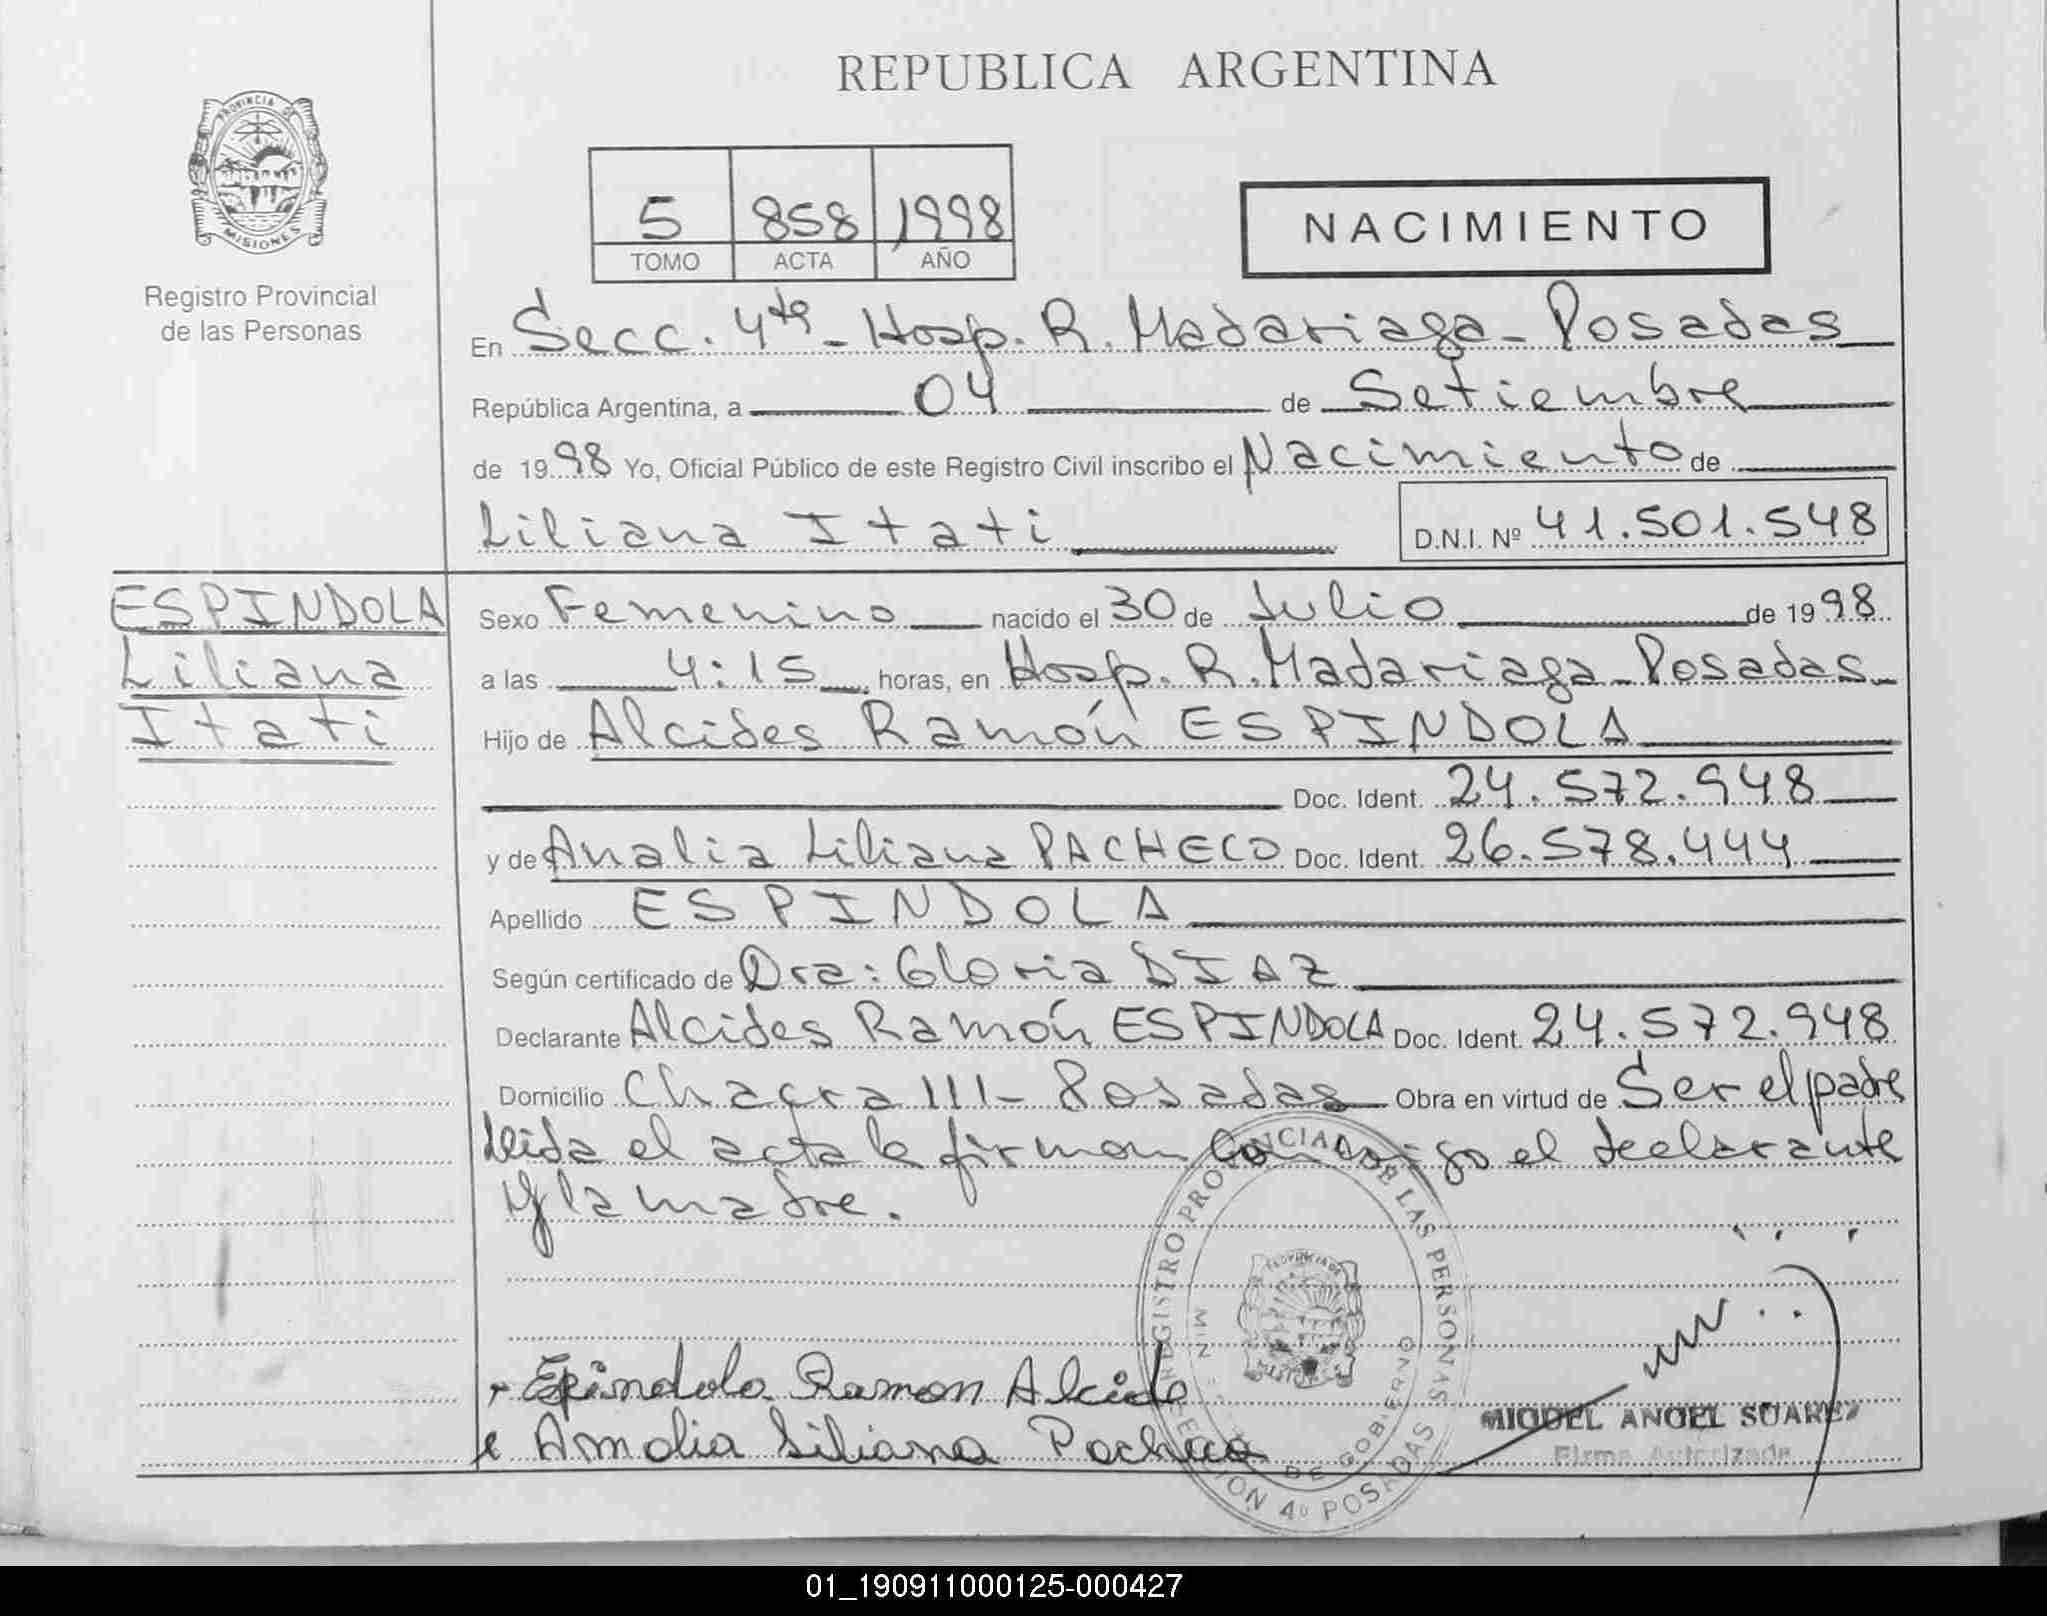 REPUBLICA ARGENTINA
PROVINCIA DE
MISIONES
Registro Provincial
de las Personas
5 858 1998
TOMO ACTA AÑO
NACIMIENTO
En Secc. 4ta - Hosp. R. Madariaga - Posadas
República Argentina, a 04 de Setiembre
de 1998 Yo, Oficial Público de este Registro Civil inscribo el Nacimiento de
Liliana Itati D.N.I. Nº 41.501.548
ESPINDOLA
Liliana
Itati
Sexo Femenino nacido el 30 de Julio de 1998
a las 4:15 horas, en Hosp. R. Madariaga - Posadas
Hijo de Alcides Ramón ESPINDOLA
Doc. Ident. 24.572.948
y de Analia Liliana PACHECO Doc. Ident. 26.578.444
Apellido ESPINDOLA
Según certificado de Dra: Gloria DIAZ
Declarante Alcides Ramón ESPINDOLA Doc. Ident. 24.572.948
Domicilio Chacra 111 - Posadas Obra en virtud de Ser el padre
Leida el acta la firman conmigo el declarante
y la madre.
Epindola Ramon Alcide
Amalia Liliana Pacheco
REGISTRO PROVINCIAL DE LAS PERSONAS
DE GOBIERNO
SECCION 4º POSADAS
MIGUEL ANGEL SUAREZ
Firma Autorizada
01_190911000125-000427